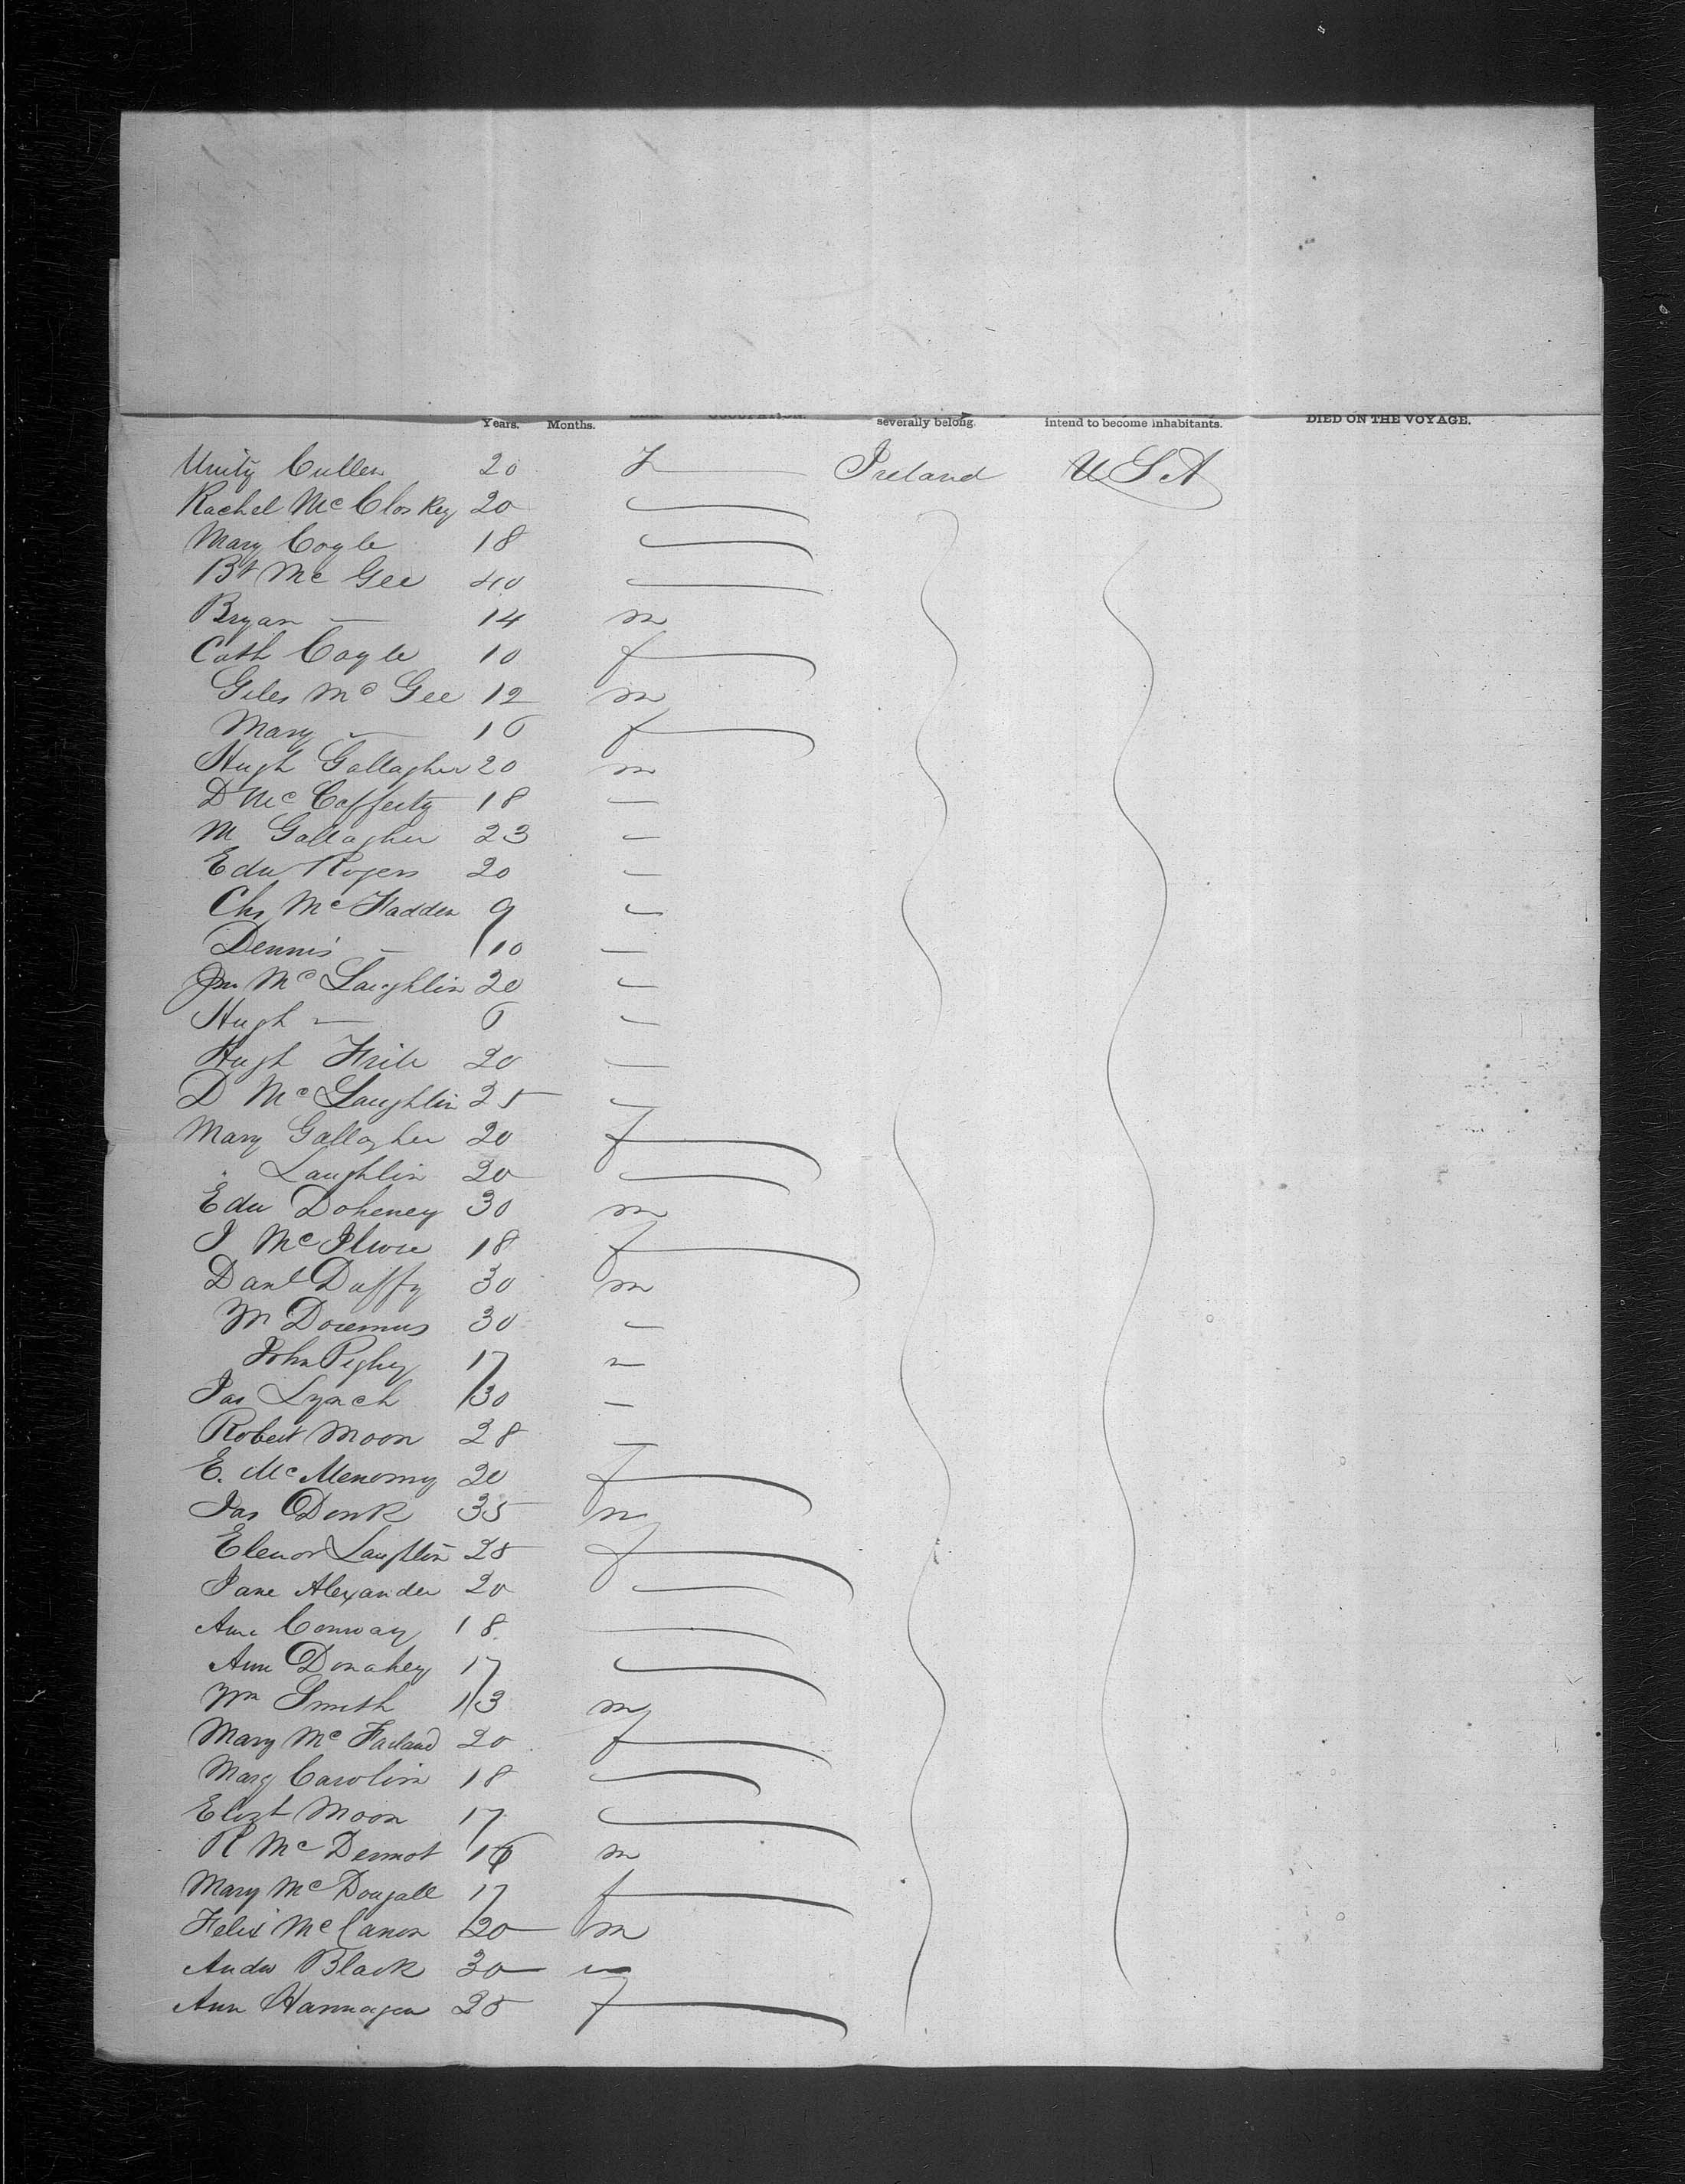 Years. Months. severally belong intend to become inhabitants. DIED ON THE VOYAGE.
Unity Cullen 20 F Ireland USA
Rachel Mc Closkey 20
Mary Coyle 18
Bt Mc Gee 40
Bryan — 14 m
Cath Coyle 10 f
Giles Mc Gee 12 m
Mary — 16 f
Hugh Gallagher 20 m
D Mc Cafferty 18 —
M Gallagher 23 —
Edw Rogers 20 —
Chs Mc Fadden 9 —
Dennis — 10 —
Jno Mc Laughlin 20 —
Hugh — 6 —
Hugh 20 —
D Mc Laughlin 25 —
Mary Gallagher 20 f
Laughlin 20
Edw Doheney 30 m
J Mc 18 f
Danl Duffy 30 m
M Doremus 30 —
John 17 —
Jas Lynch 30 —
Robert Moon 28 —
E. Mc Menomy 20 f
Jas 35 m
Elenor Laughlin 25 f
Jane Alexander 20
Ann Conway 18
Ann Donahey 17
Wm Smith 13 m
Mary Mc Farland 20 f
Marg Carolin 18
Elizt Moon 17
R Mc Dermot 16 m
Mary Mc Dougall 17 f
Felix Mc Canon 20 m
Andw Black 30
Ann Hannagan 25 f